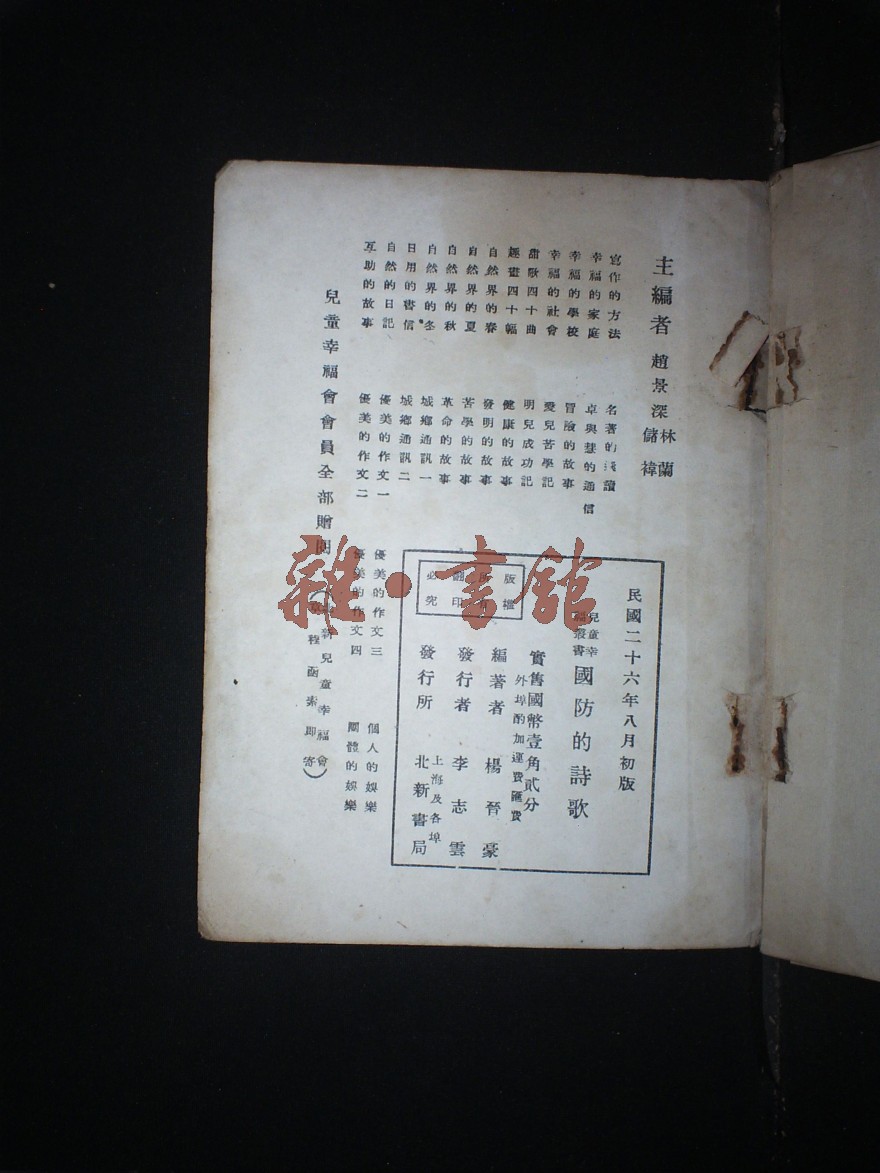 主編者 趙景深 林蘭
儲禕
寫作的方法
幸福的家庭
幸福的學校
幸福的社會
甜歌四十曲
趣畫四十幅
自然界的春
自然界的夏
自然界的秋
自然界的冬
日用的書信
自然的日記
互助的故事
名著的讀
卓與慧的通信
冒險的故事
愛兒苦學記
明兒成功記
健康的故事
發明的故事
苦學的故事
革命的故事
城鄉通訊一
城鄉通訊二
優美的作文一
優美的作文二
優美的作文三
優美的作文四
個人的娛樂
團體的娛樂
兒童幸福會會員全部贈閱
新兒童幸福會
章程函索即寄
民國二十六年八月初版
兒童幸福叢書 國防的詩歌
實售國幣壹角貳分
外埠酌加運費匯費
編著者 楊晉豪
發行者 李志雲
發行所 上海及各埠 北新書局
版權
所有
翻印
必究
雜·書館